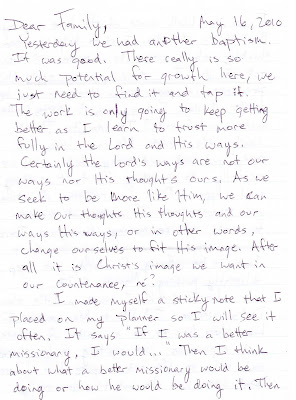 Dear Family, May 16, 2010
Yesterday we had another baptism.
It was good. There really is so
much potential for growth here, we
just need to find it and tap it.
The work is only going to keep getting
better as I learn to trust more
fully in the Lord and His ways.
Certainly the Lord's ways are not our
ways nor His thoughts ours. As we
seek to be more like Him, we can
make our thoughts His thoughts and our
ways His ways, or in other words,
change ourselves to fit His image. After
all it is Christ's image we want in
our countenance, ne?
I made myself a sticky note that I
placed on my planner so I will see it
often. It says "If I was a better
missionary, I would..." Then I think
about what a better missionary would be
doing or how he would be doing it. Then